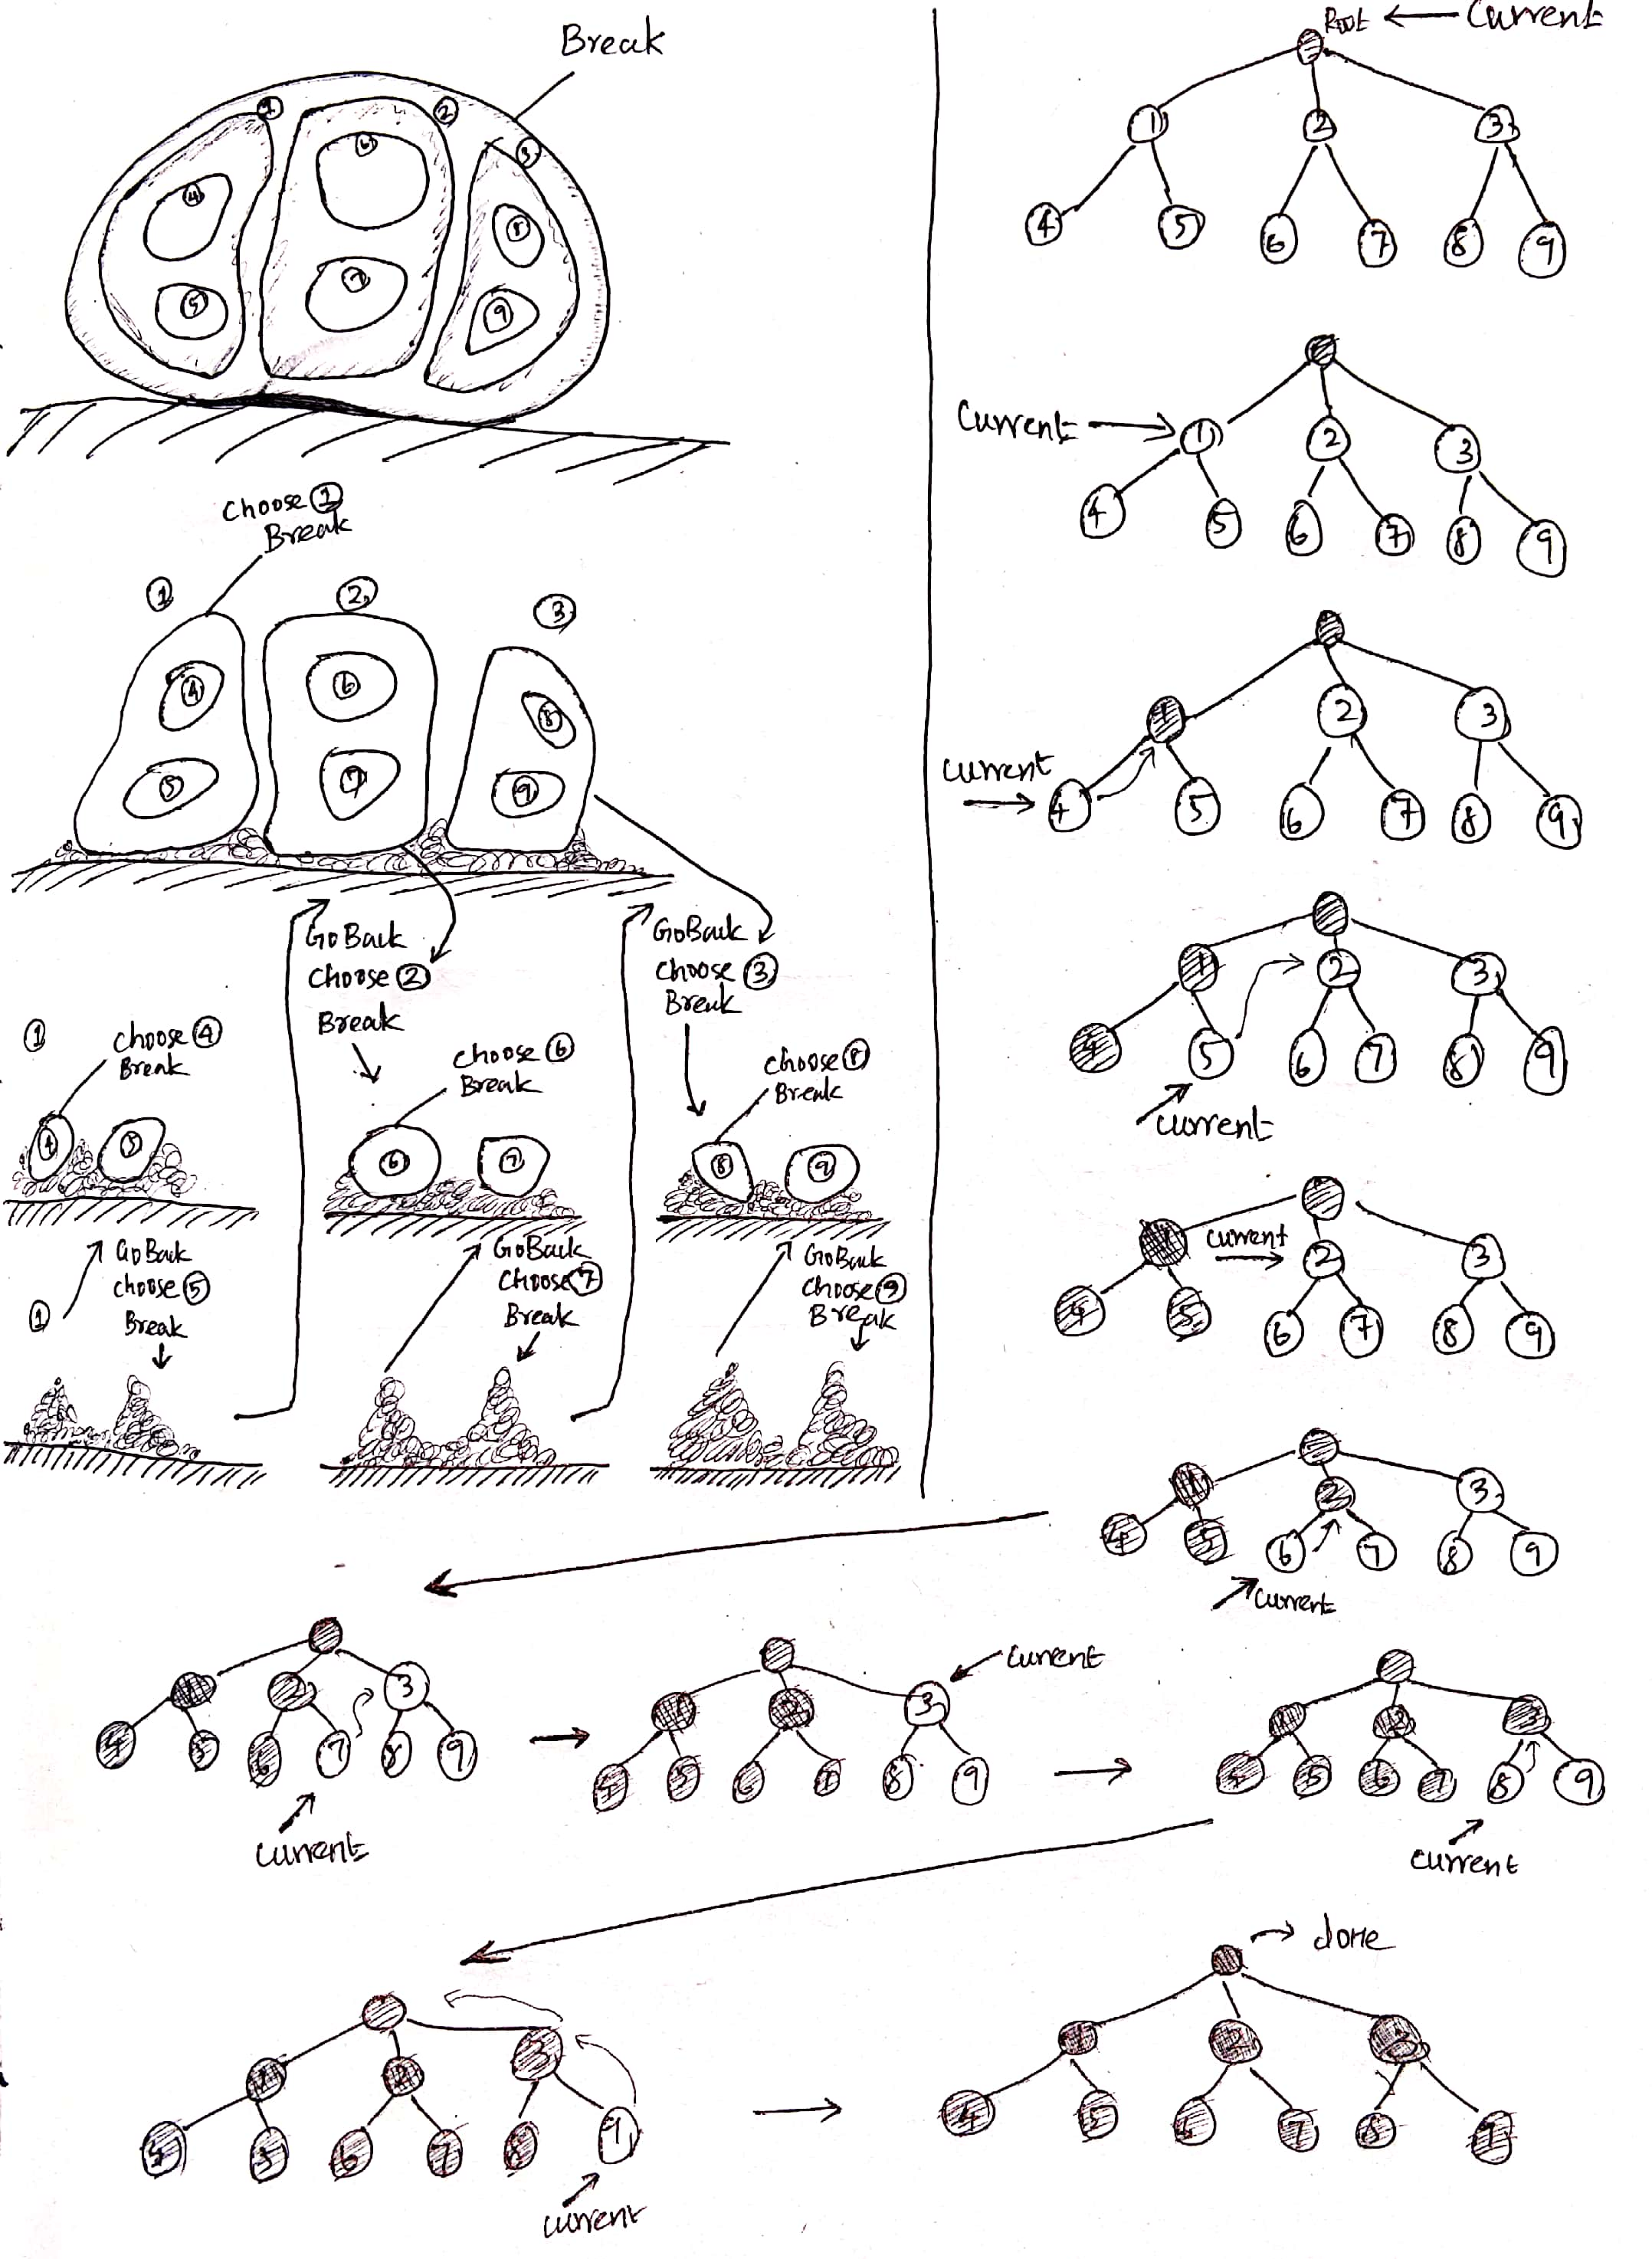 Break
1
2
3
4
6
8
5
7
9
Choose 1
Break
1
2
3
4
6
8
5
7
9
GoBack
Choose 2
Break
GoBack
Choose 3
Break
1
Choose 4
Break
Choose 6
Break
Choose 8
Break
4
5
6
7
8
9
1
GoBack
Choose 5
Break
GoBack
Choose 7
Break
GoBack
Choose 9
Break
Root ← Current
1 2 3
4 5 6 7 8 9
Current →
1 2 3
4 5 6 7 8 9
1 2 3
Current →
4 5 6 7 8 9
1 2 3
4 5 6 7 8 9
Current
1 Current → 2 3
4 5 6 7 8 9
1 2 3
4 5 6 7 8 9
Current
1 2 3
4 5 6 7 8 9
Current
Current
1 2 3
4 5 6 7 8 9
1 2 3
4 5 6 7 8 9
Current
1 2 3
4 5 6 7 8 9
Current
done
1 2 3
4 5 6 7 8 9